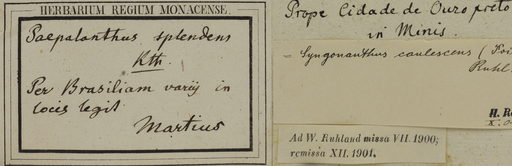 HERBARIUM REGIUM MONACENSE.
Paepalanthus splendens
Kth.
Per Brasiliam variis in
locis legit
Martius
Prope Cidade de Ouro preto
in Minis.
- Syngonanthus caulescens (Poi
Ruhl.
H. R
X.
Ad W. Ruhland missa VII. 1900;
remissa XII. 1901.